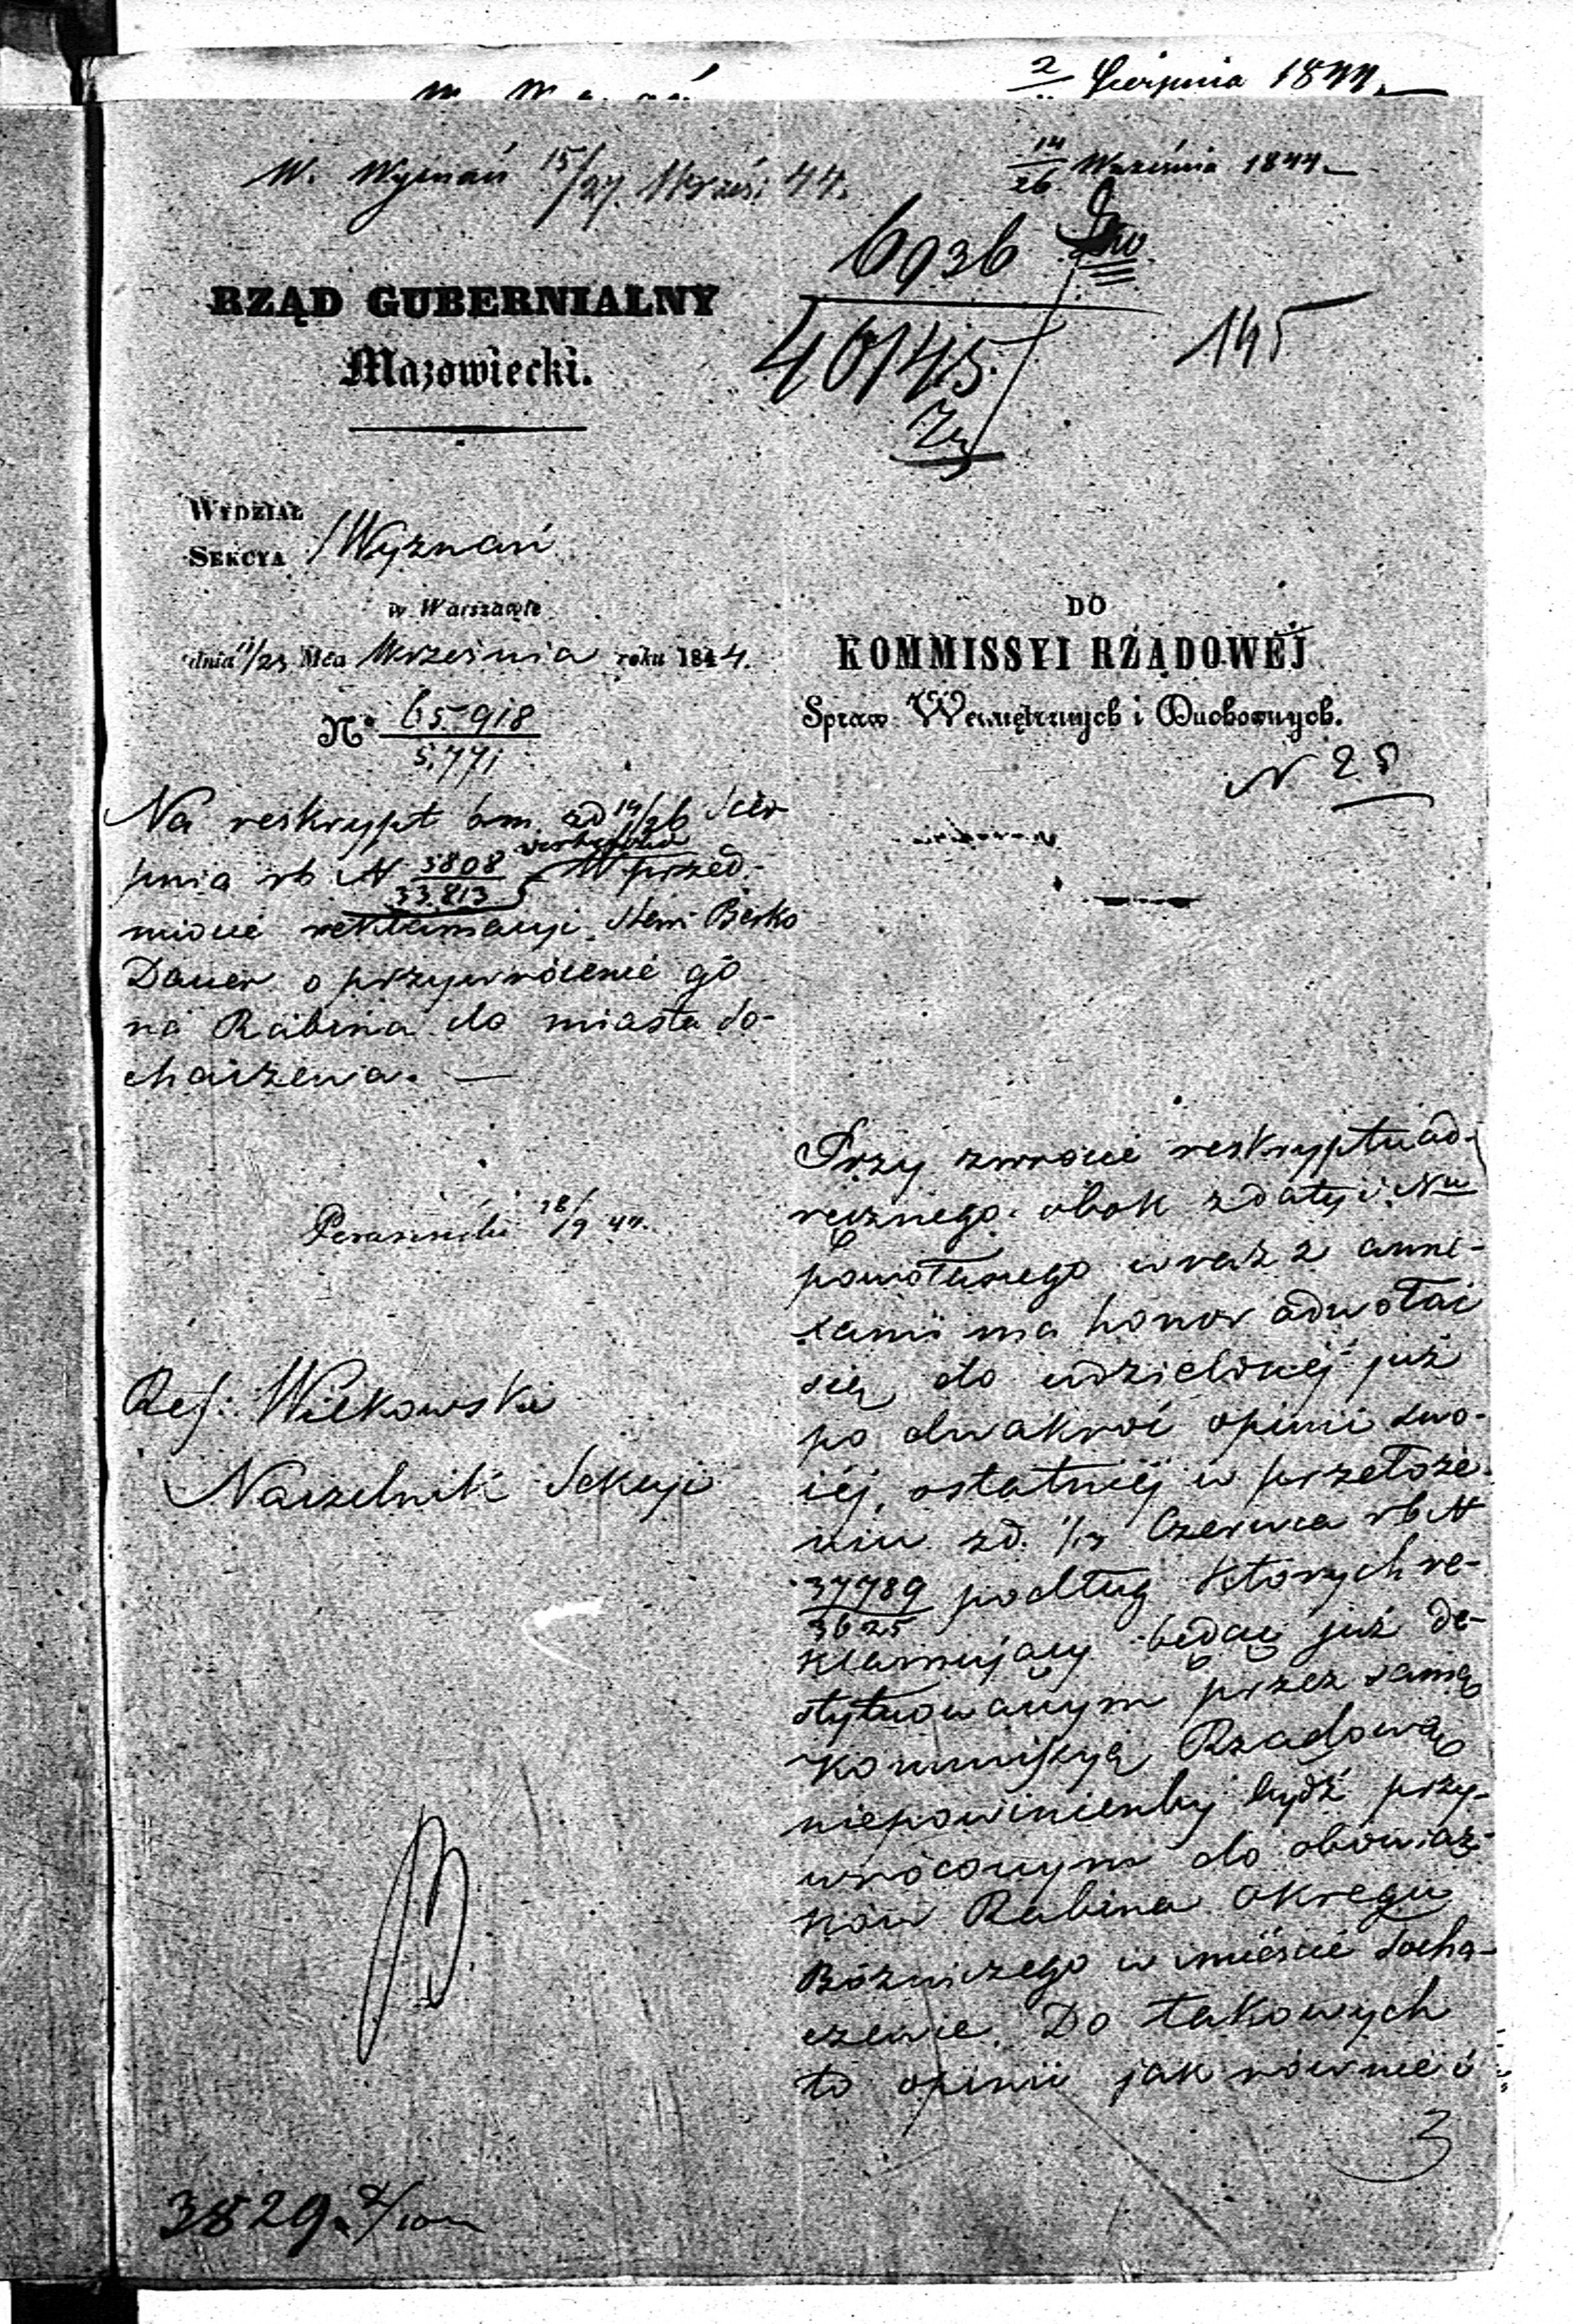 2 Sierpnia 1844
W. Wyznań 15/27. Wrześ: 44.
14/26 Września 1844
6936
40145
145
RZĄD GUBERNIALNY
Mazowiecki.
WYDZIAŁ
SEKCYA Wyznań
w Warszawie
dnia 11/23 Mca Września roku 1844.
No 65.918
5.771
DO
KOMMISSYI RZĄDOWEJ
Spraw Wewnętrznych i Duchownych.
N 25
Na reskrypt z d 14/26 Sier-
pnia rb N 3808/33.813 W przed-
miocie reklamacyi Berko
Dauer o przywrócenie go
na Rabina do miasta So-
chaczewa. —
28/9 44.
Ref: Wilkowski
Naczelnik Sekcyi
Przy zwrocie reskryptu od-
ręcznego obok z daty i Nru
powołanego wraz z anne-
xami ma honor odwołać
się do udzielonej już
po dwakroć opinii swo-
iéj, ostatniéj w przełoże-
niu z d. 1/13 Czerwca rb N
37789/3625 podług których re-
klamujący będąc już de-
stytuowanym przez samą
Kommissyą Rządową
niepowinienby bydź przy-
wróconym do obowiąz-
ków Rabina Okręgu
Bóżniczego w mieście Socha-
czewie. Do takowych
to opinii jak również i
3
3829